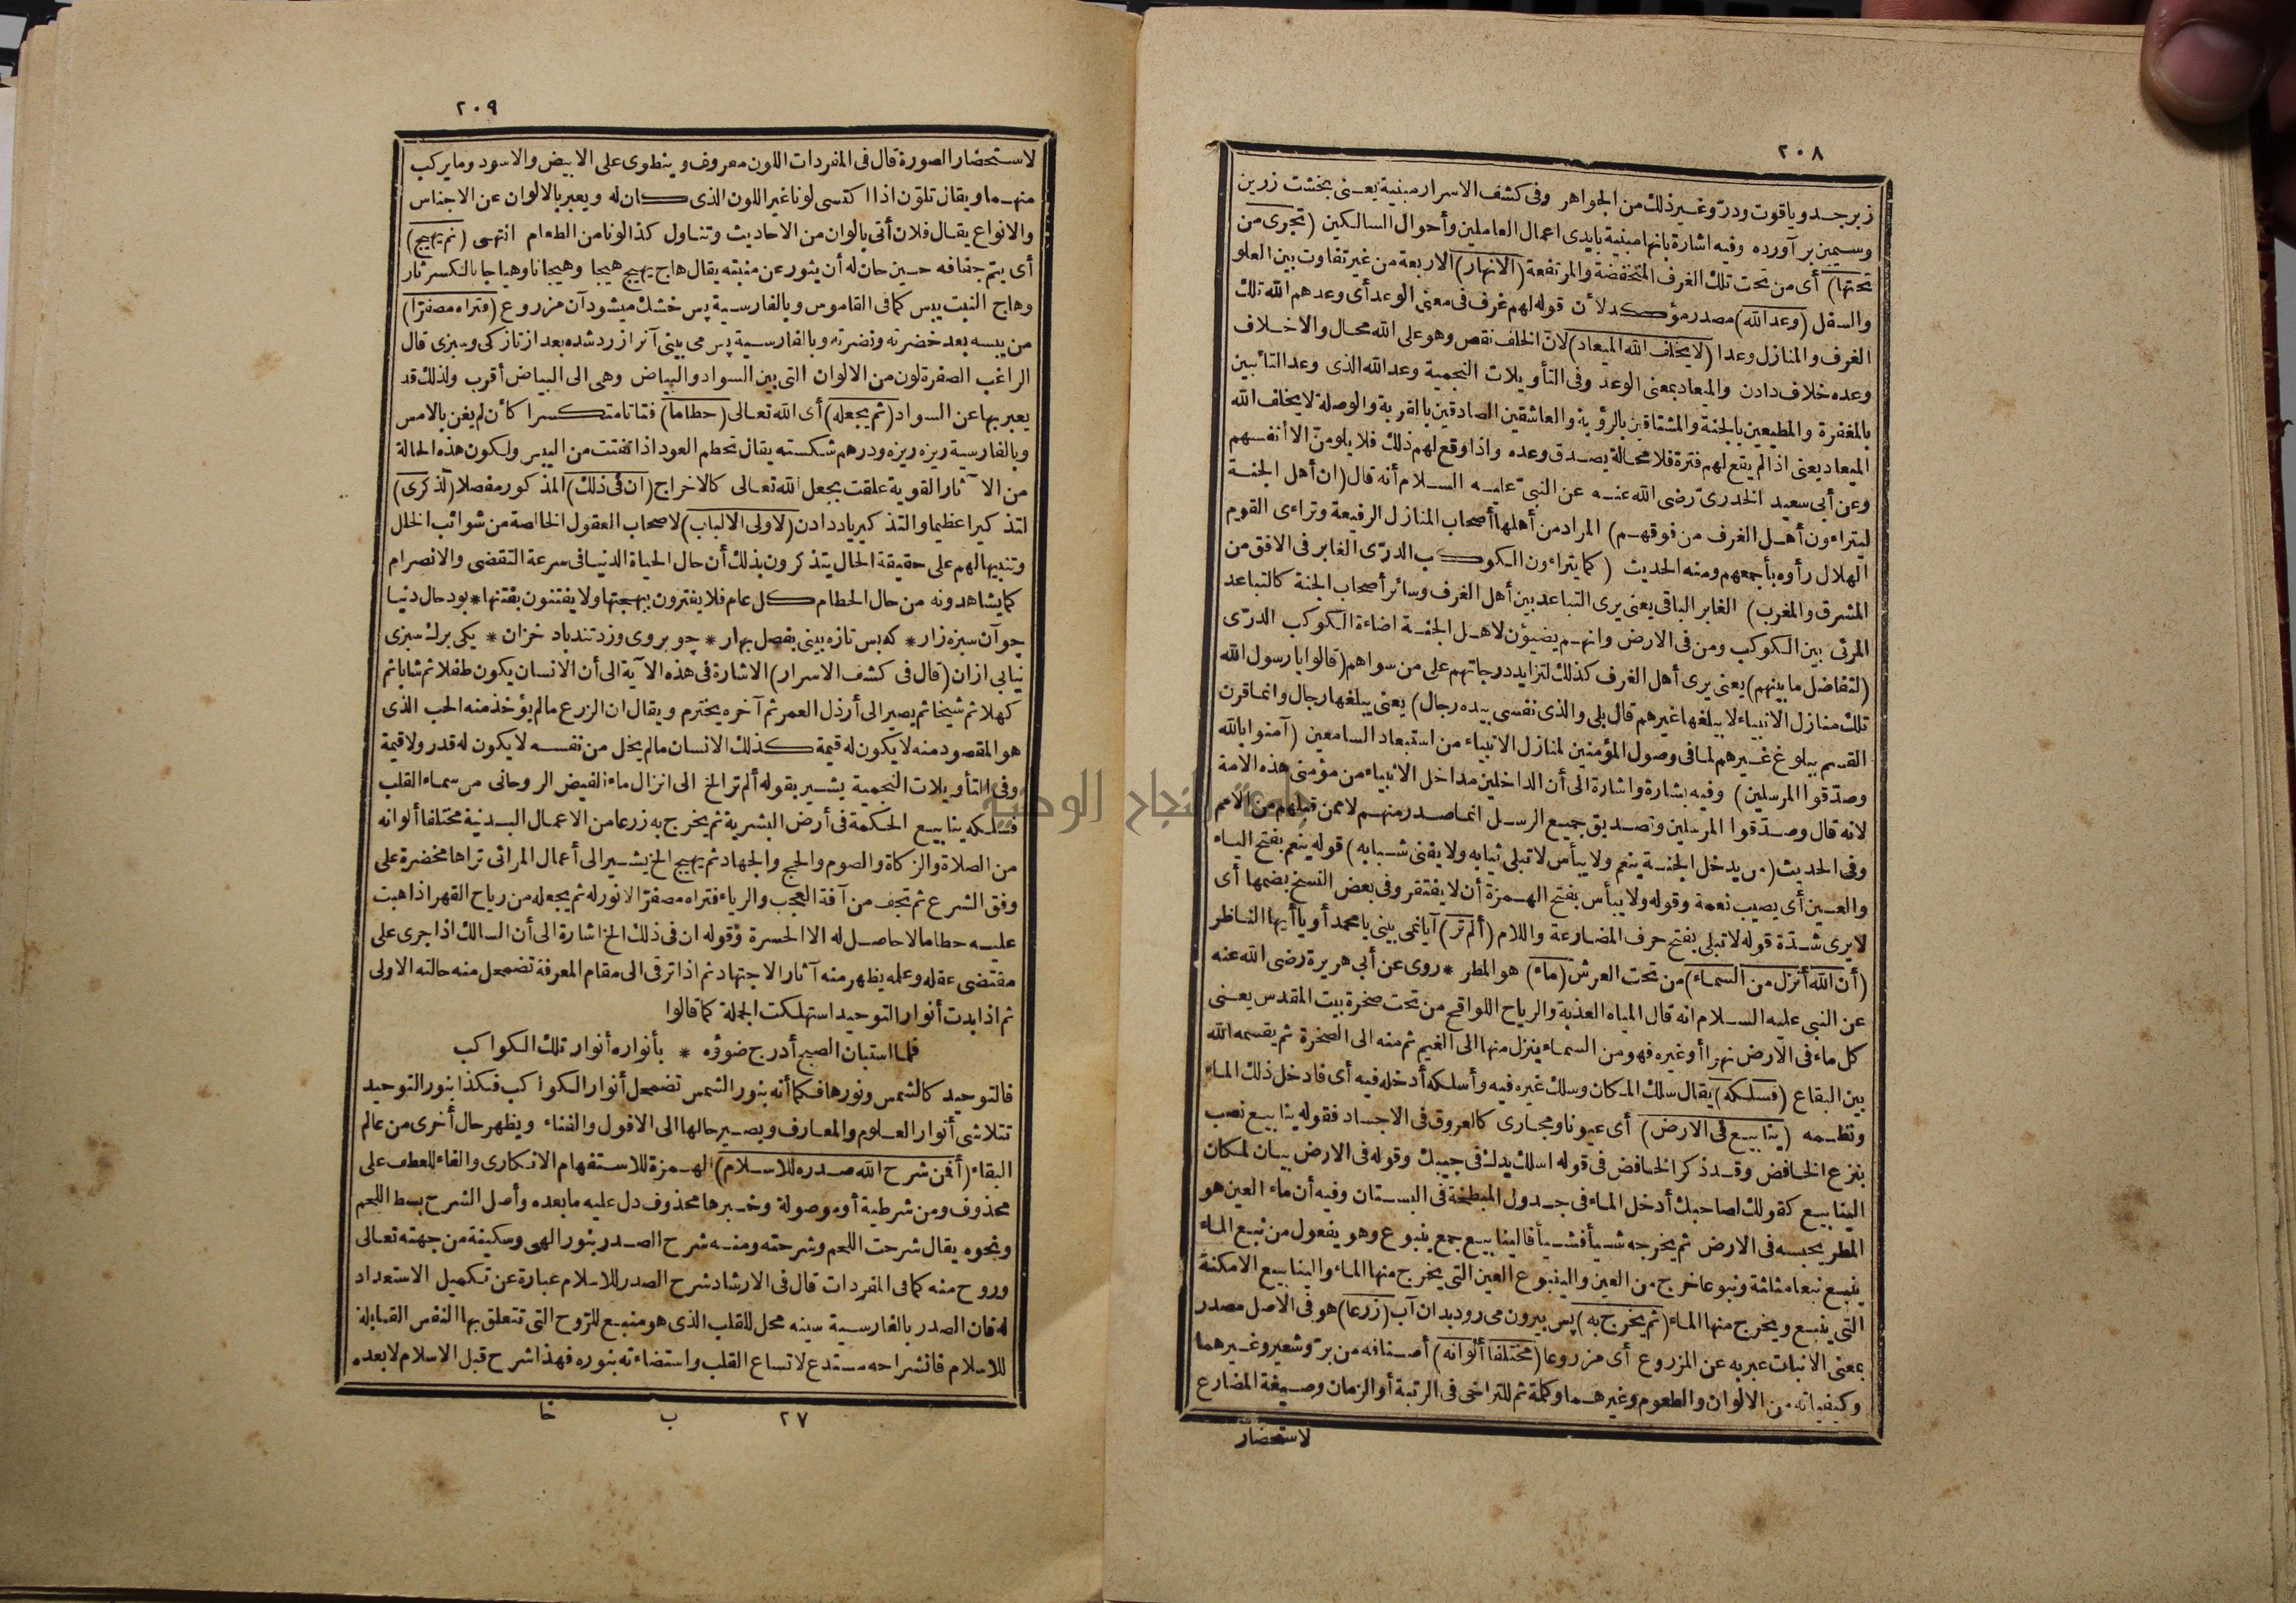 ٢٠٨
زبرجد وياقوت ودرّ وغير ذلك من الجواهر وفى كشف الاسرار مبنية يعنى بخشت زرين
وسيمين بر آورده وفيه اشارة بانها مبنية بايدى اعمال العاملين وأحوال السالكين (تجرى من
تحتها) أى من تحت تلك الغرف المنخفضة والمرتفعة (الانهار) الاربعة من غير تفاوت بين العلو
والسفل (وعد الله) مصدر مؤكد لأن قوله لهم غرف فى معنى الوعد أى وعدهم الله تلك
الغرف والمنازل وعدا (لا يخلف الله الميعاد) لانّ الخلف نقص وهو على الله محال والاخلاف
وعده خلاف دادن والميعاد بمعنى الوعد وفى التأويلات النجمية وعد الله الذى وعد التائبين
بالمغفرة والمطيعين بالجنة والمشتاقين بالرؤية والعاشقين الصادقين بالقربة والوصلة لا يخلف الله
الميعاد يعنى اذا لم يقع لهم فترة فلا محالة يصدق وعده واذا وقع لهم ذلك فلا يلومنّ الا أنفسهم
وعن أبى سعيد الخدرىّ رضى الله عنه عن النبىّ عليه السلام أنه قال (ان أهل الجنة
ليتراءون أهل الغرف من فوقهم) المراد من أهلها أصحاب المنازل الرفيعة وتراءى القوم
الهلال رأوه بأجمعهم ومنه الحديث (كما يتراءون الكوكب الدرّى الغابر فى الافق من
المشرق والمغرب) الغابر الباقى يعنى يرى التباعد بين أهل الغرف وسائر أصحاب الجنة كالتباعد
المرئى بين الكوكب ومن فى الارض وانهم يضيؤن لاهل الجنة اضاءة الكوكب الدرّى
(لتفاضل ما بينهم) يعنى يرى أهل الغرف كذلك لتزايد درجاتهم على من سواهم (قالوا يا رسول الله
تلك منازل الانبياء لا يبلغها غيرهم قال بلى والذى نفسى بيده رجال) يعنى يبلغها رجال وانما قرن
القسم ببلوغ غيرهم لما فى وصول المؤمنين لمنازل الانبياء من استبعاد السامعين (آمنوا بالله
وصدّقوا المرسلين) وفيه بشارة واشارة الى أن الداخلين مداخل الانبياء من مؤمنى هذه الامة
لانه قال وصدّقوا المرسلين وتصديق جميع الرسل انما صدر منهم لا ممن قبلهم من الامم
وفى الحديث (من يدخل الجنة ينعم ولا يبأس لا تبلى ثيابه ولا يفنى شبابه) قوله ينعم بفتح الياء
والعين أى يصيب نعمة وقوله ولا يبأس بفتح الهمزة أن لا يفتقر وفى بعض النسخ بضمها أى
لا يرى شدّة قوله لا تبلى بفتح حرف المضارعة واللام (ألم تر) آيا نمى بينى يا محمد أو يا أيها الناظر
(أن الله أنزل من السماء) من تحت العرش (ماء) هو المطر * روى عن أبى هريرة رضى الله عنه
عن النبى عليه السلام انه قال المياه العذبة والرياح اللواقح من تحت صخرة بيت المقدس يعنى
كل ماء فى الارض نهرا أو غيره فهو من السماء ينزل منها الى الغيم ثم منه الى الصخرة ثم يقسمه الله
بين البقاع (فسلكه) يقال سلك المكان وسلك غيره فيه وأسلكه أدخله فيه أى فادخل ذلك الماء
ونظمه (ينابيع فى الارض) أى عيونا ومجارى كالعروق فى الاجساد فقوله ينابيع نصب
بنزع الخافض وقد ذكر الخافض فى قوله اسلك يدك فى جيبك وقوله فى الارض بيان لمكان
الينابيع كقولك لصاحبك أدخل الماء فى جدول المبطخة فى البستان وفيه أن ماء العين هو
المطر يحبسه فى الارض ثم يخرجه شيأ فشيأ فالينابيع جمع ينبوع وهو يفعول من نبع الماء
ينبع نبعا مثلثة ونبوعا خرج من العين والينبوع العين التى يخرج منها الماء والينابيع الامكنة
التى ينبع ويخرج منها الماء (ثم يخرج به) پس بيرون مى رويد بدان آب (زرعا) هو فى الاصل مصدر
بمعنى الانبات عبر به عن المزروع أى مزروعا (مختلفا ألوانه) أصنافه من برّ وشعير وغيرهما
وكيفياته من الالوان والطعوم وغيرهما وكلمة ثم للتراخى فى الرتبة أو الزمان وصيغة المضارع
لاستحضار
٢٠٩
لاستحضار الصورة قال فى المفردات اللون معروف وينطوى على الابيض والاسود وما يركب
منهما ويقال تلوّن اذا اكتسى لونا غير اللون الذى كان له ويعبر بالالوان عن الاجناس
والانواع يقال فلان أتى بالوان من الاحاديث وتناول كذا لونا من الطعام انتهى (ثم يهيج)
أى يتم جفافه حين حان له أن يثور عن منبته يقال هاج يهيج هيجا وهيجانا وهياجا بالكسر ثار
وهاج النبت يبس كما فى القاموس وبالفارسية پس خشك ميشود آن مزروع (فتراه مصفرّا)
من يبسه بعد خضرته ونضرته وبالفارسية پس مى بينى آنرا زرد شده بعد از تازكى وسبزى قال
الراغب الصفرة لون من الالوان التى بين السواد والبياض وهى الى البياض أقرب ولذلك قد
يعبر بها عن السواد (ثم يجعله) أى الله تعالى (حطاما) فتاتا متكسرا كأن لم يغن بالامس
وبالفارسية ريزه ريزه ودرهم شكسته يقال تحطم العود اذا تفتت من اليبس ولكون هذه الحالة
من الآثار القوية علقت بجعل الله تعالى كالاخراج (ان فى ذلك) المذكور مفصلا (لذكرى)
لتذكيرا عظيما والتذكير ياد دادن (لاولى الالباب) لاصحاب العقول الخالصة من شوائب الخلل
وتنبيها لهم على حقيقة الحال يتذكرون بذلك أن حال الحياة الدنيا فى سرعة التقضى والانصرام
كما يشاهدونه من حال الحطام كل عام فلا يغترون ببهجتها ولا يفتنون بفتنتها * بود حال دنيا
چو آن سبزه زار * كه بس تازه بينى بفصل بهار * چو بروى وزد تند باد خزان * يكى برك سبزى
نيابى ازان (قال فى كشف الاسرار) الاشارة فى هذه الآية الى أن الانسان يكون طفلا ثم شابا ثم
كهلا ثم شيخا ثم يصير الى أرذل العمر ثم آخره يخترم ويقال ان الزرع ما لم يؤخذ منه الحب الذى
هو المقصود منه لا يكون له قيمة كذلك الانسان ما لم يخل من نفسه لا يكون له قدر ولا قيمة
وفى التأويلات النجمية يشير بقوله ألم تر الخ الى انزال ماء الفيض الروحانى من سماء القلب
فسلكه ينابيع الحكمة فى أرض البشرية ثم يخرج به زرعا من الاعمال البدنية مختلفا ألوانه
من الصلاة والزكاة والصوم والحج والجهاد ثم يهيج الخ يشير الى أعمال المرائى تراها مخضرة على
وفق الشرع ثم تجف من آفة العجب والرياء فتراه مصفرّا لا نور له ثم يجعله من رياح القهر اذا هبت
عليه حطاما لا حاصل له الا الحسرة وقوله ان فى ذلك الخ اشارة الى أن السالك اذا جرى على
مقتضى عقله وعلمه يظهر منه آثار الاجتهاد ثم اذا ترقى الى مقام المعرفة تضمحل منه حالته الاولى
ثم اذا بدت أنوار التوحيد استهلكت الجملة كما قالوا
فلما استبان الصبح أدرج ضوؤه * بأنواره أنوار تلك الكواكب
فالتوحيد كالشمس ونورها فكما أنه بنور الشمس تضمحل أنوار الكواكب فكذا بنور التوحيد
تتلاشى أنوار العلوم والمعارف ويصير حالها الى الافول والفناء ويظهر حال أخرى من عالم
البقاء (أفمن شرح الله صدره للاسلام) الهمزة للاستفهام الانكارى والفاء للعطف على
محذوف ومن شرطية أو موصولة وخبرها محذوف دل عليه ما بعده وأصل الشرح بسط اللحم
ونحوه يقال شرحت اللحم وشرحته ومنه شرح الصدر بنور الهى وسكينة من جهته تعالى
وروح منه كما فى المفردات قال فى الارشاد شرح الصدر للاسلام عبارة عن تكميل الاستعداد
له فان الصدر بالفارسية سينه محل للقلب الذى هو منبع للرّوح التى تتعلق بها النفس القابلة
للاسلام فانشراحه مستدع لاتساع القلب واستضاءته بنوره فهذا شرح قبل الاسلام لا بعده
٢٧ ب خا
النجاح الوطنية